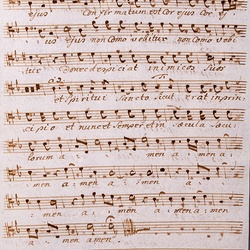 ejus Confirmatum est Cor ejus cor e,
jus ejus non Commovebitur non Commovebi
tur Donec despiciat inimicos suos
et Spiritui Sancto sicut erat in prin
cipio et nunc et Semper et in saecula saecu
lorum a men amen a
men amen amen a
men amen amen amen
men amen.